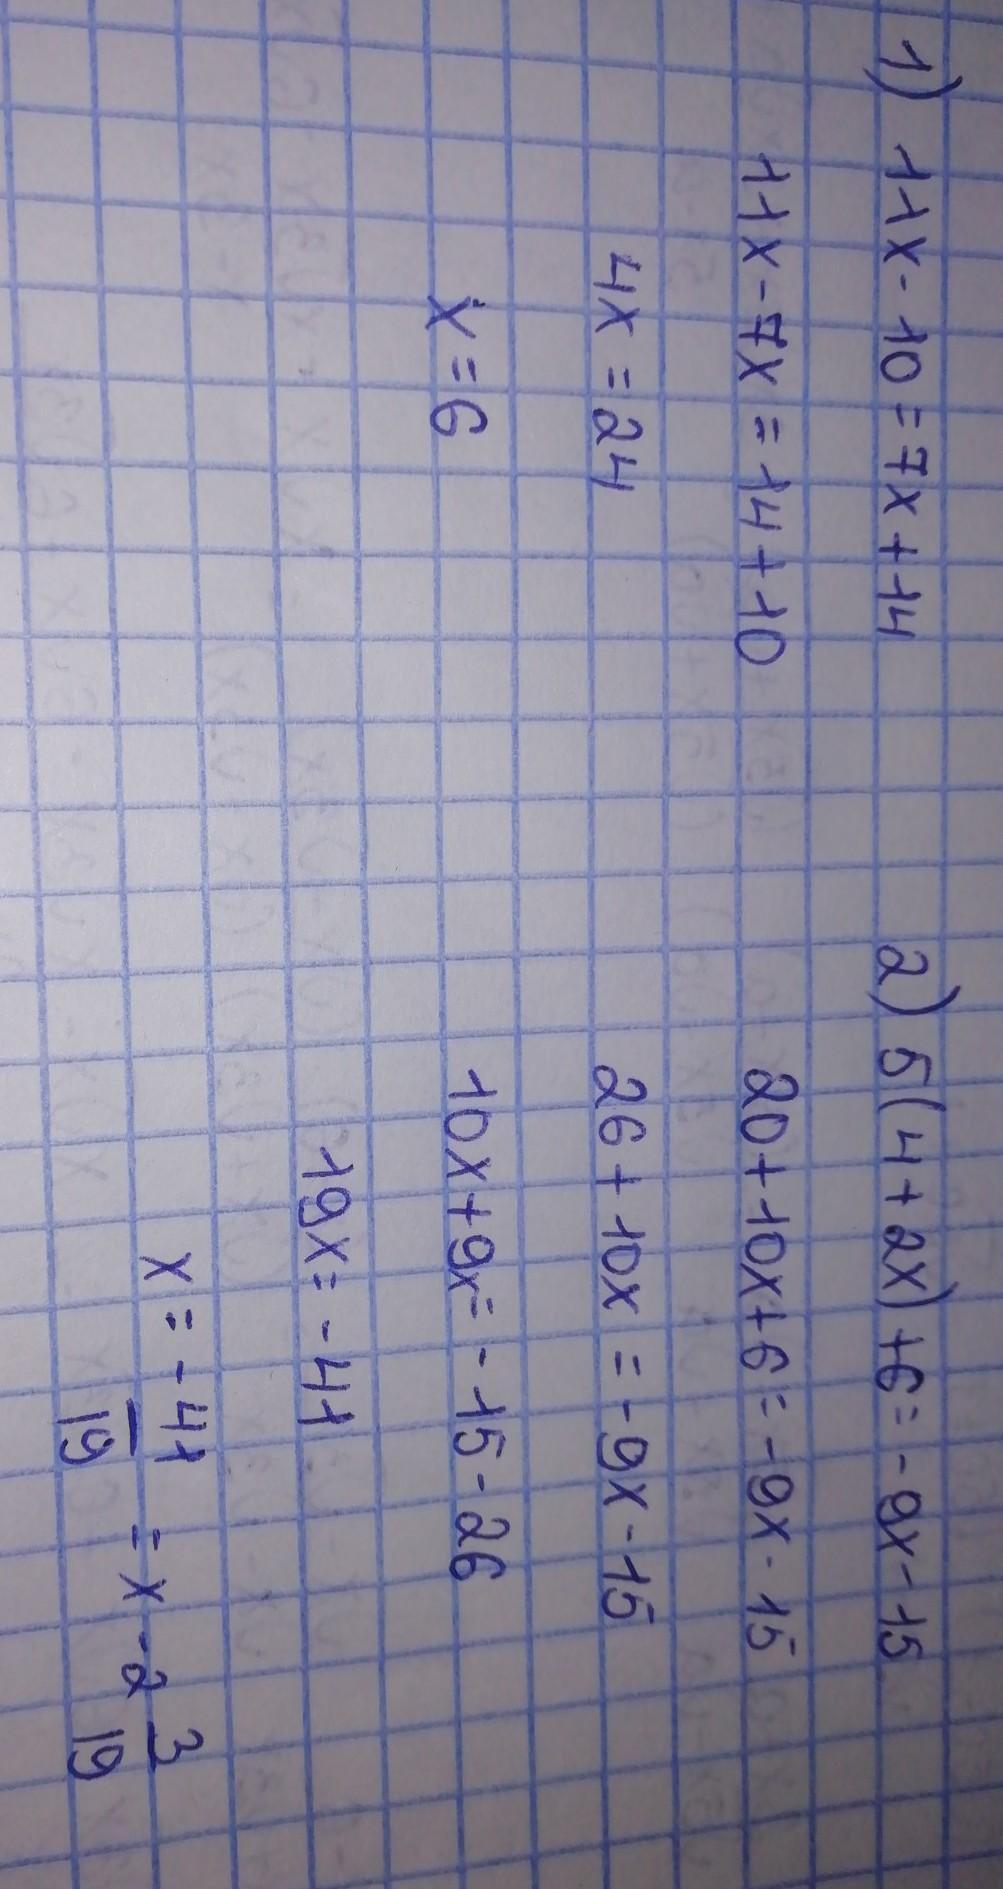 1) 11x - 10 = 7x + 14
11x - 7x = 14 + 10
4x = 24
x = 6
2) 5(4 + 2x) + 6 = - 9x - 15
20 + 10x + 6 = - 9x - 15
26 + 10x = - 9x - 15
10x + 9x = - 15 - 26
19x = - 41
x = - 41/19 = x - 2 3/19